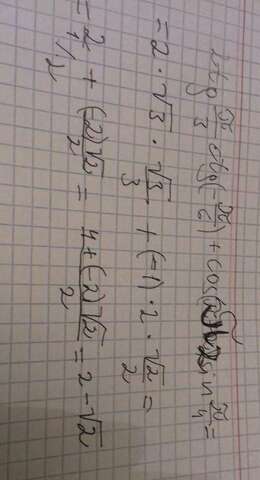 2tg π/3 ctg(-π/6) + cos sin π/4 =
= 2 · √3 · √3/3 + (-1) · 2 · √2/2 =
= 2/1/2 + (-2)√2/2 = 4+(-2)√2/2 = 2 - √2